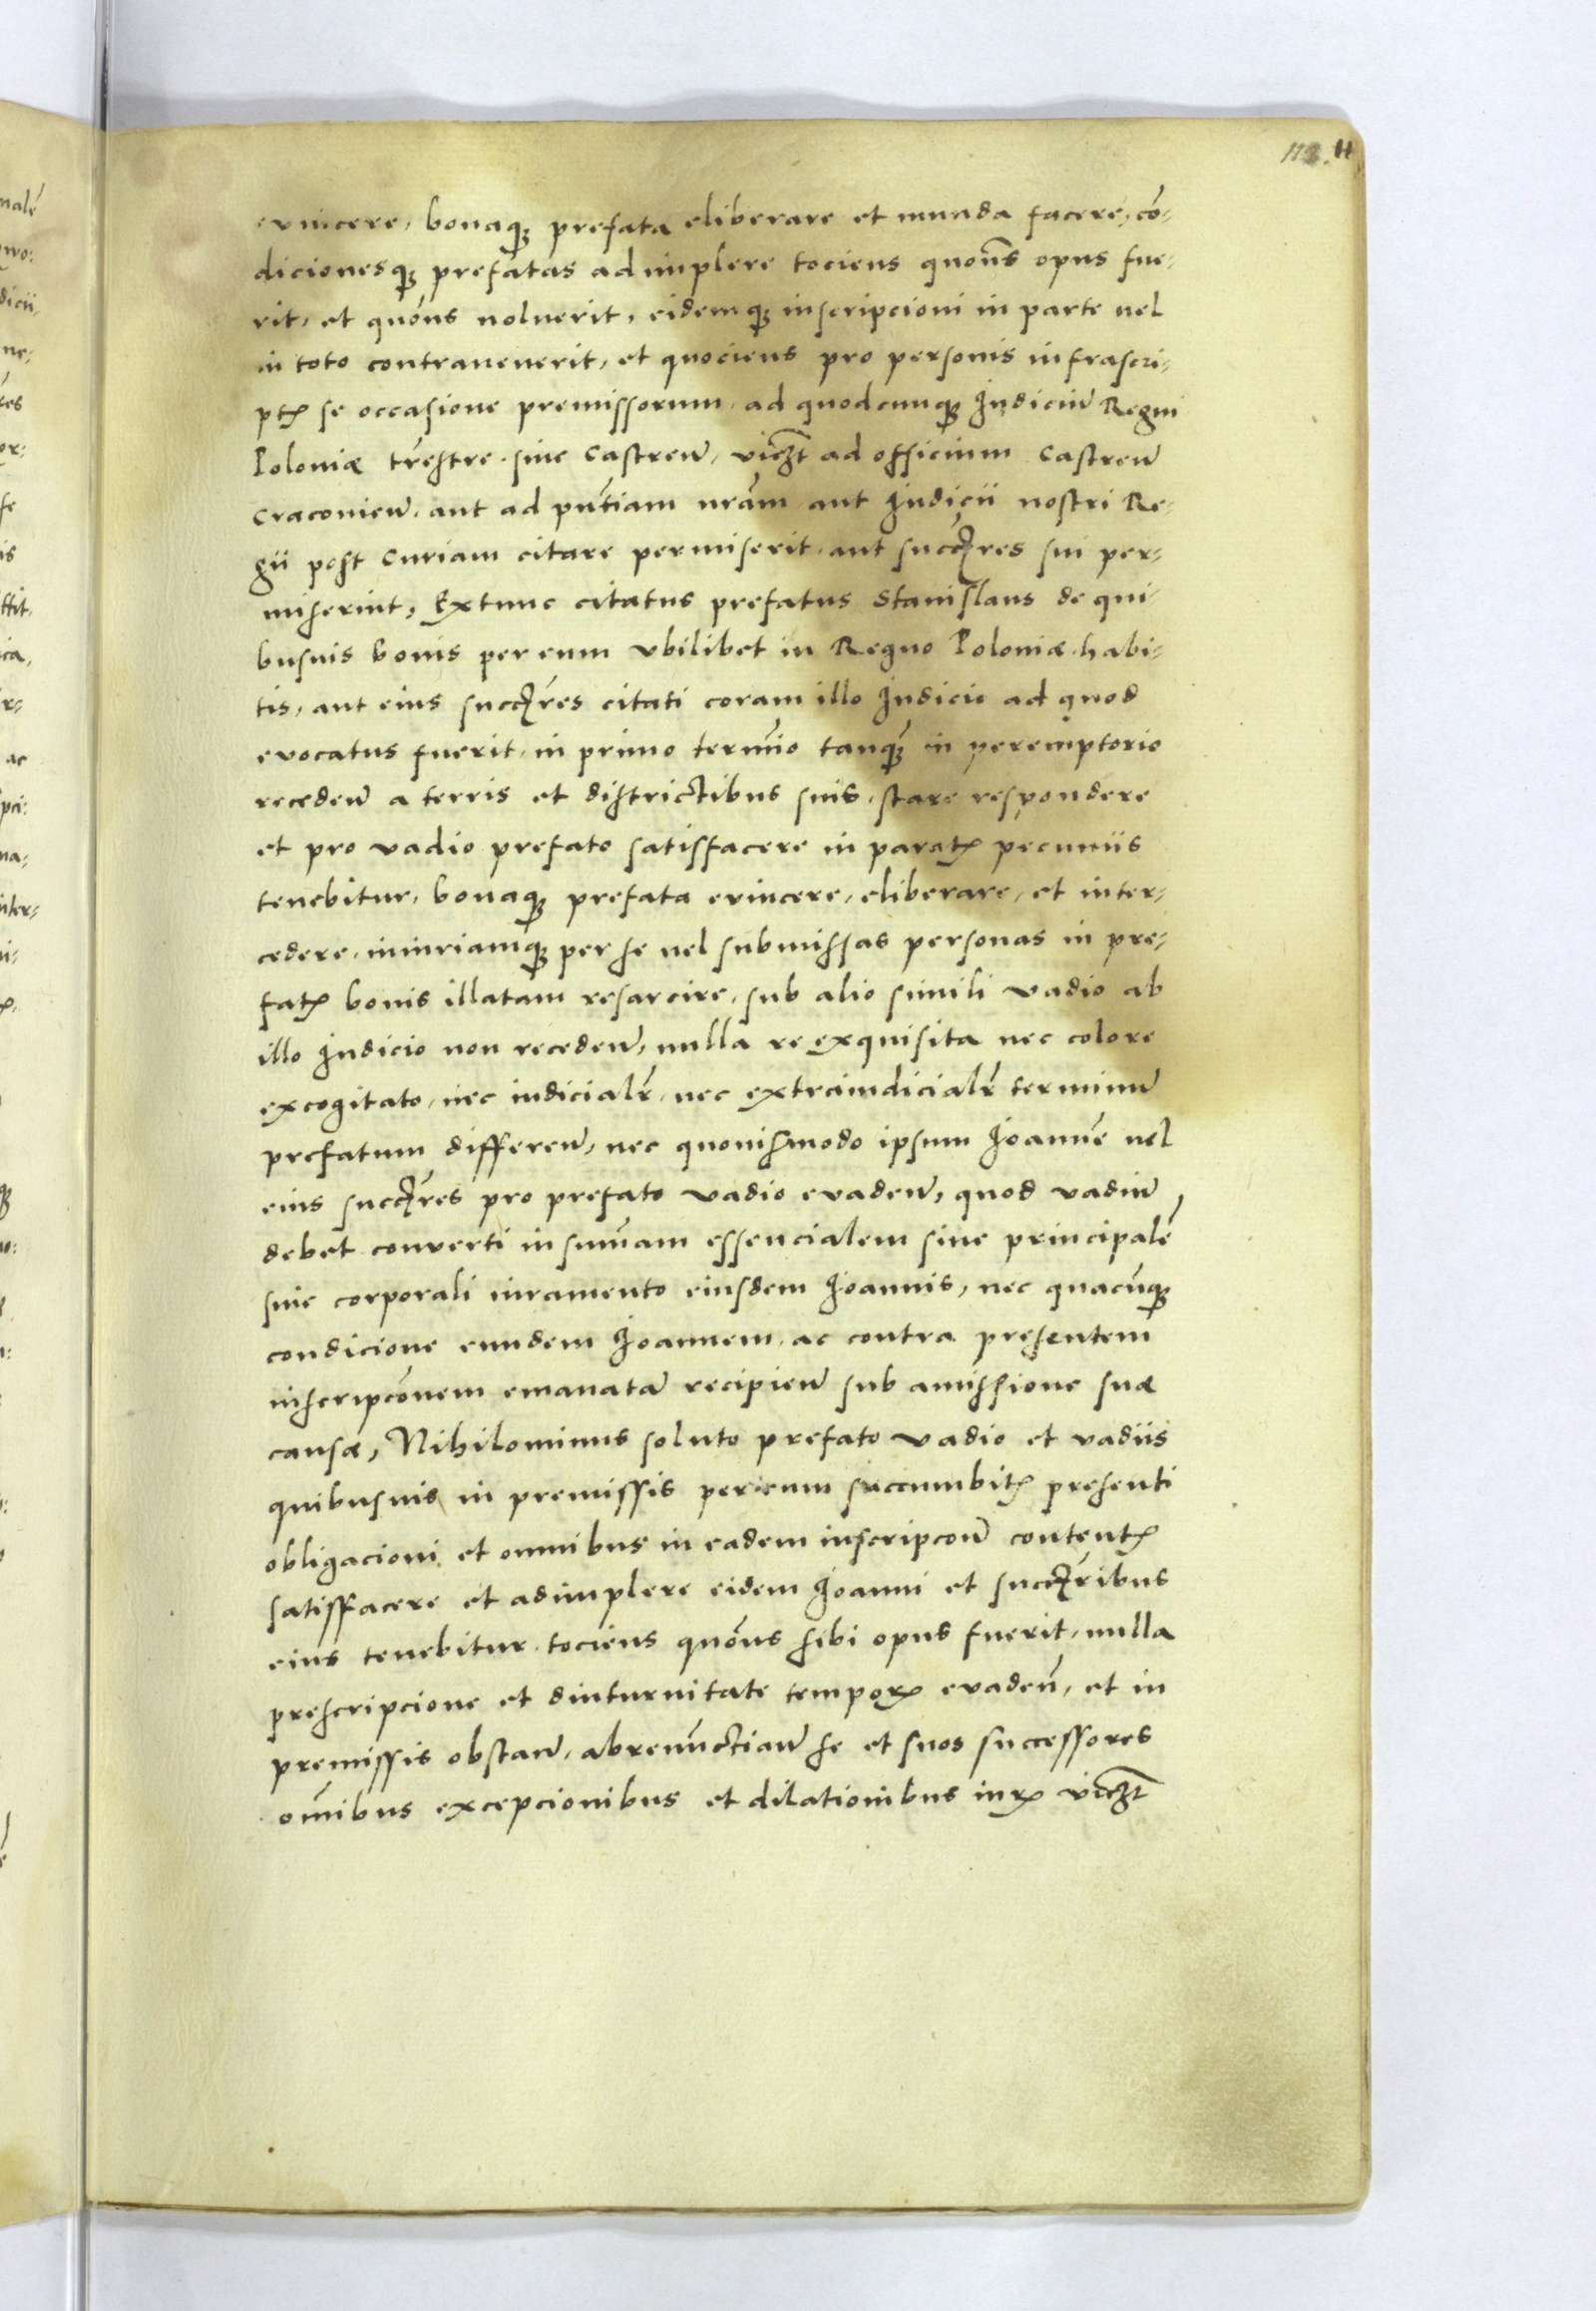 evincere, bonaq₃ prefata eliberare et munda facere, cō-
dicionesq₃ prefatas adimplere tociens quoñs opus fue-
rit, et quōns noluerit, eidemq₃ inscripcioni in parte uel
in toto contrauenerit, et quociens pro personis infrascri-
ptꝭ se occasione premissorum, ad quodcunq₃ Iudiciũ Regni
Poloniæ tr̃estre siue Castreñ, vicꝫt ad officium Castreñ
Cracovieñ, aut ad pñtiam nrãm aut Iudicii nostri Re-
gii post Curiam citare permiserit aut succꝝ̃res sui per-
miserint, Extunc citatus prefatus Stanislaus de qui-
busuis bonis per eum vbilibet in Regno Poloniæ habi-
tis, aut eius succꝝ̃res citati coram illo Iudicio ad quod
evocatus fuerit, in primo termĩo tanq₃̃ in peremptorio
recedeñ a terris et districtibus suis, stare respondere
et pro vadio prefato satisfacere in paratꝭ pecuniis
tenebitur, bonaq₃ prefata evincere, eliberare, et inter-
cedere, iniuriamq₃ per se uel submissas personas in pre-
fatꝭ bonis illatam resarcire, sub alio simili vadio ab
illo Iudicio non recedeñ, nulla re exquisita nec colore
excogitato, nec iudicialr̃, nec extraiudicialr̃ terminũ
prefatum differeñ, nec quouismodo ipsum Ioannẽ uel
eius succꝝ̃res pro prefato vadio evadeñ, quod vadiũ
debet converti in sum̃am essencialem siue principalẽ
sine corporali iuramento eiusdem Ioannis, nec quacũq₃
condicione eundem Ioannem, ac contra presentem
inscripcõnem emanatã recipieñ sub amissione suæ
causæ, Nihilominus soluto prefato vadio et vadiis
quibusuis in premissis per eum succumbitꝭ presenti
obligacioni et omnibus in eadem inscripcoñ contentꝭ
satisfacere et adimplere eidem Ioanni et succꝝ̃ribus
eius tenebitur tociens quõns sibi opus fuerit, nulla
prescripcione et diuturnitate temporꝝ evadeñ, et in
premissis obstañ, abrenũctiañ se et suos successores
om̃ibus excepcionibus et dilationibus iurꝭ vicꝫt